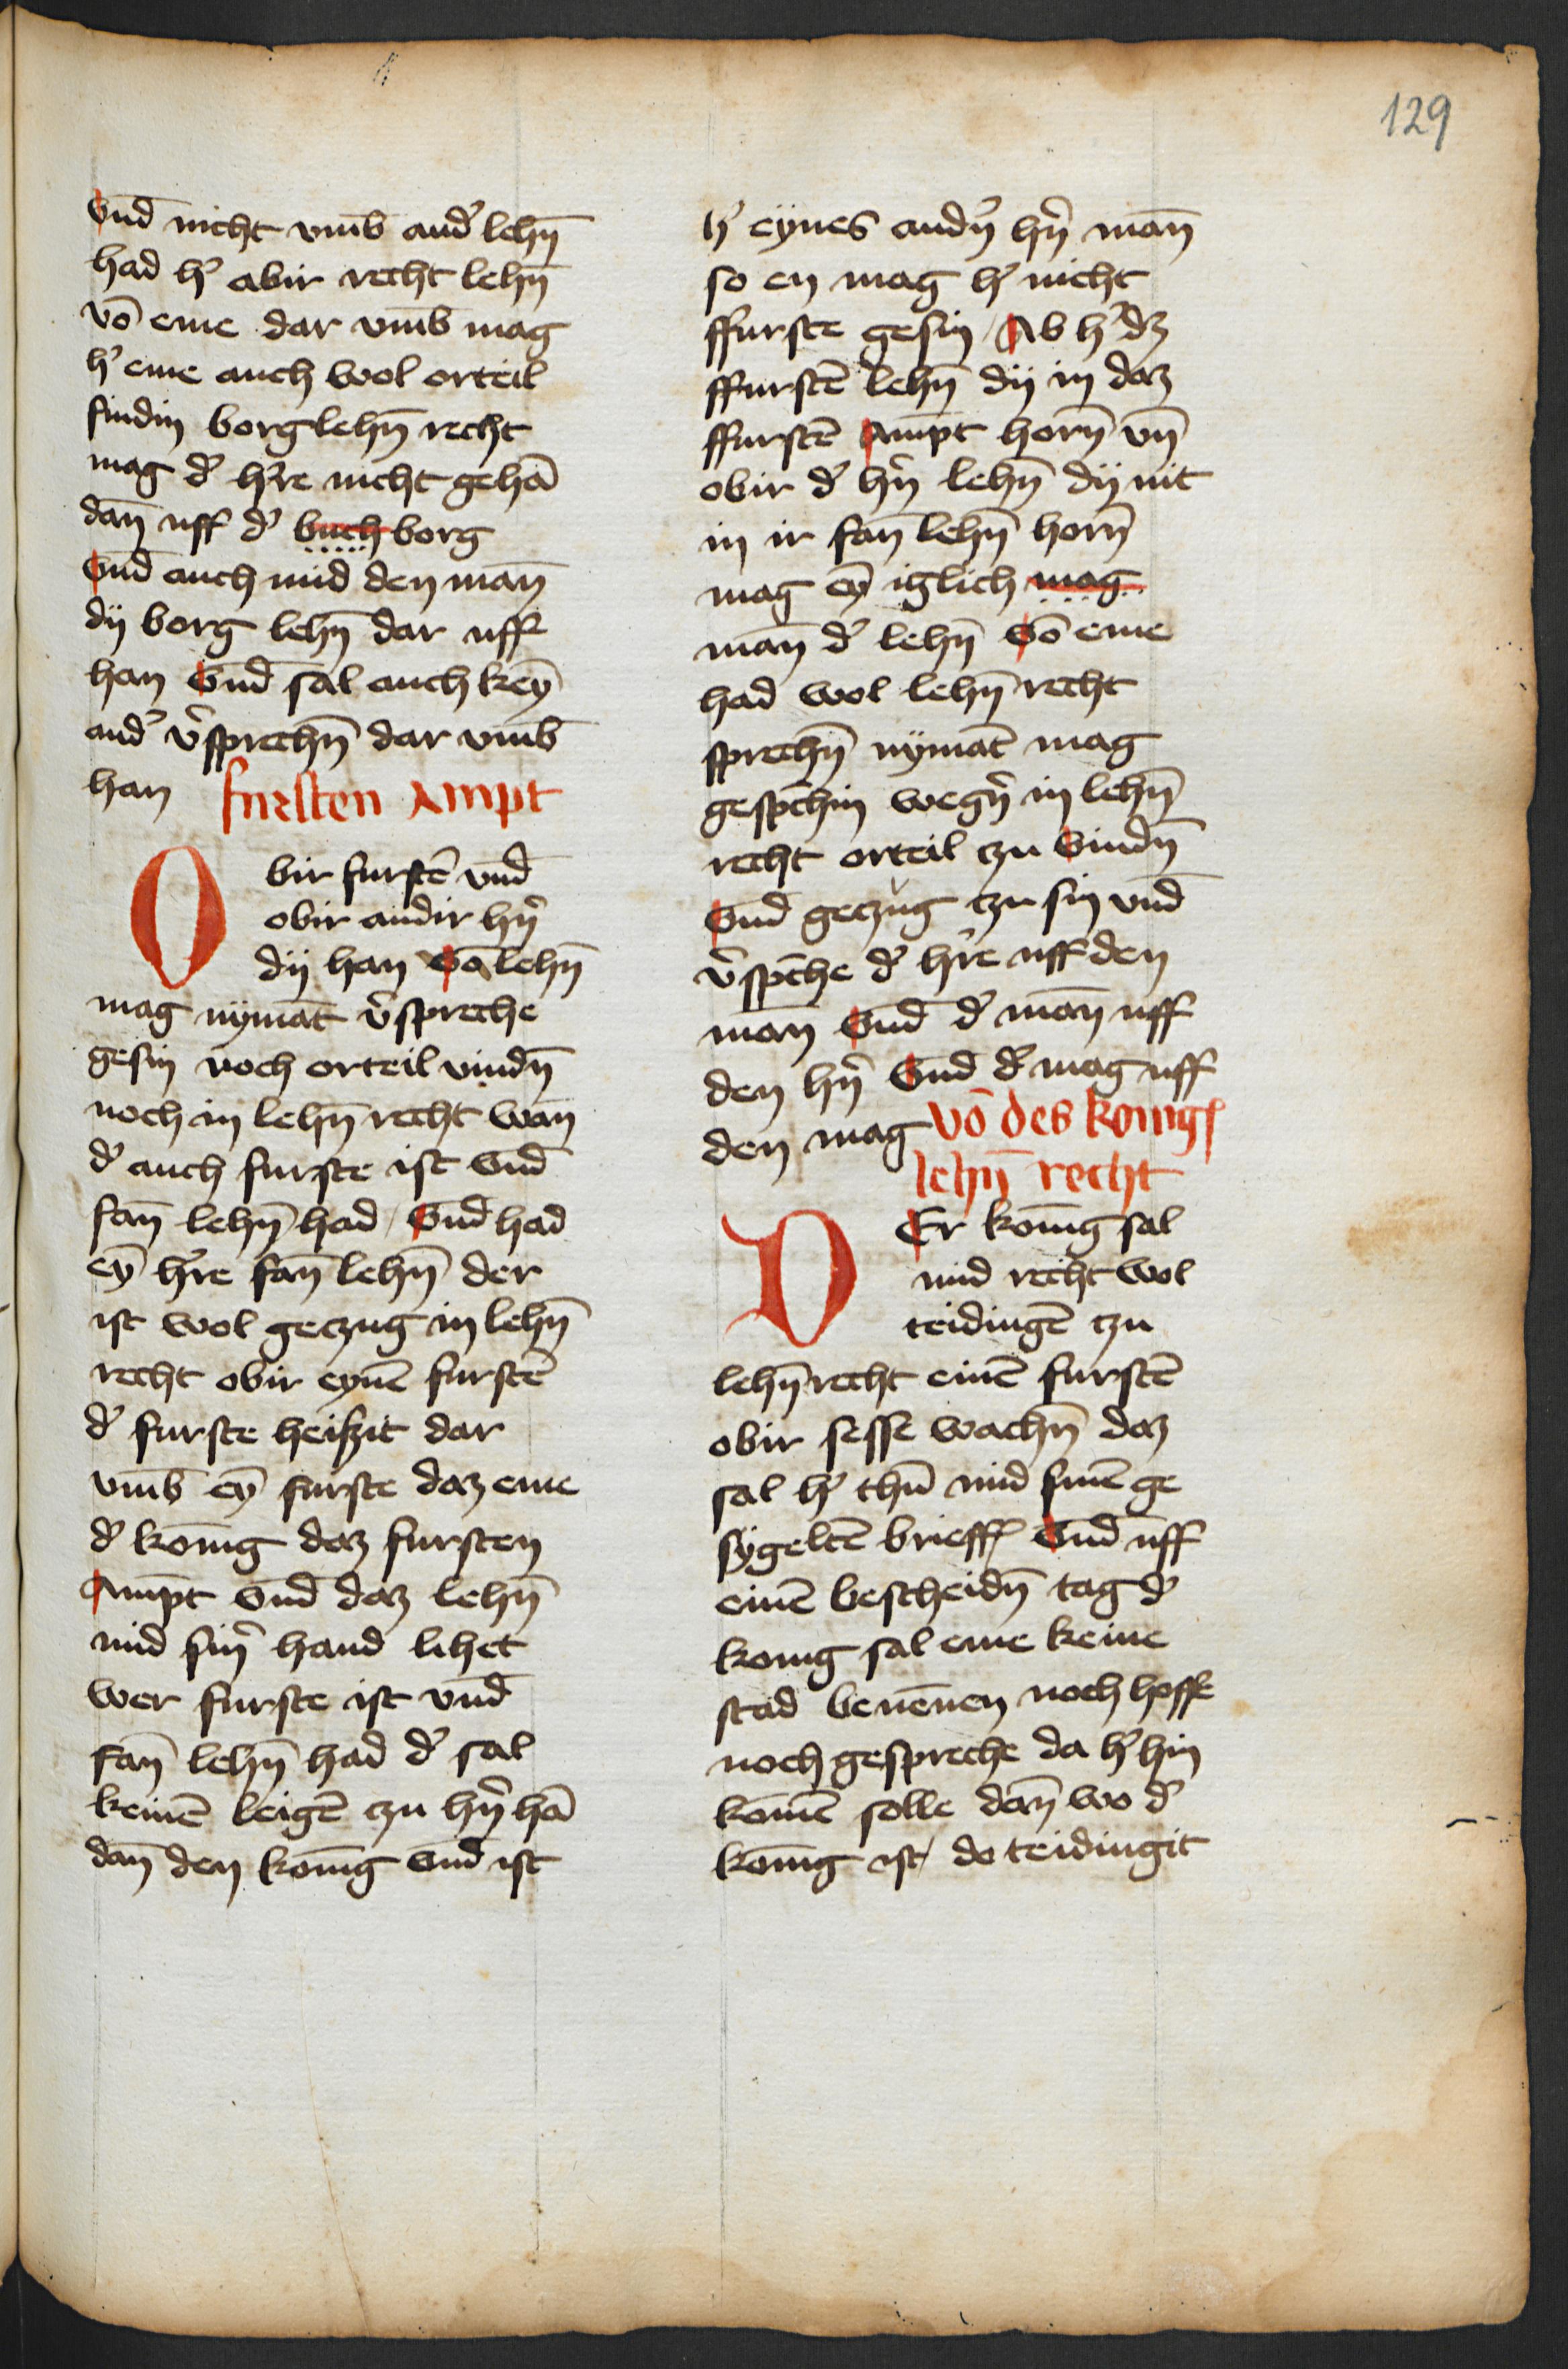 129
vnd̄ nicht vm̄b and᾽ lehn̄
had h᾽ abir recht lehn̄
vō eme dar vm̄b mag
h᾽ eme auch wol orteil
findin borglehn̄ recht
mag d᾽ h᾽re nicht gehā
dan̄ uff d᾽ buch borg
vnd̄ auch mid den man̄
dij borg lehn̄ dar uff
han vnd̄ sal auch keȳ
and᾽ v᾽sprechn̄ dar vm̄b
han fursten Ampt
Obir furstē vnd̄
obir andir hn᾽
dij han vō lehn̄
mag nymāt v᾽spreche
gesin noch orteil vindn̄
noch in lehn̄ recht wan̄
d᾽ auch furste ist vnd̄
fan̄ lehn̄ had / vnd̄ had
eȳ h᾽re fan̄ lehn̄ der
ist wol geczug in lehn̄
recht obir eynē furstē
d᾽ furste heiszit dar
vm̄b eȳ furste daz eme
d᾽ konīg daz fursten
Ampt vnd̄ daz lehn̄
mid sin᾽ hand lihet
wer furste ist vnd̄
fan̄ lehn̄ had d᾽ sal
keinē leigē czu hn᾽ hā
dan̄ den konīg vnd̄ ist
h᾽ eynes andn᾽ hn᾽ man̄
so en mag h᾽ nicht
ffurste gesin / Ab h᾽ dz
ffurstē lehn̄ dij in daz
ffurstē Ampt horn̄ vn̄
obir d᾽ hn᾽ lehn̄ dij nit
in ir fan̄ lehn̄ horn̄
mag eȳ iglich mag
man̄ d᾽ lehn̄ vō eme
had wol lehn̄ recht
sprechn̄ nymāt mag
gesp̄chin wegn᾽ in lehn̄
recht orteil czu vindn̄
vnd̄ geczug czu sin vnd̄
v᾽sp̄che d᾽ h᾽re uff den
man̄ vnd̄ d᾽ man̄ uff
den hn᾽ vnd̄ d᾽ mag uff
den mag vō des konigs
lehn̄ recht
DEr konīg sal
mid recht wol
teidingē czu
lehn̄recht einē furstē
obir sesse wachn̄ daz
sal h᾽ thū mid sinē ge
sygeltē brieffe vnd̄ uff
einē bescheidn̄ tag d᾽
konig sal eme keine
stad benēnen noch hoffe
noch gespreche da h᾽ hin
komē solle dan̄ wo d᾽
konīg ist / do teidingit